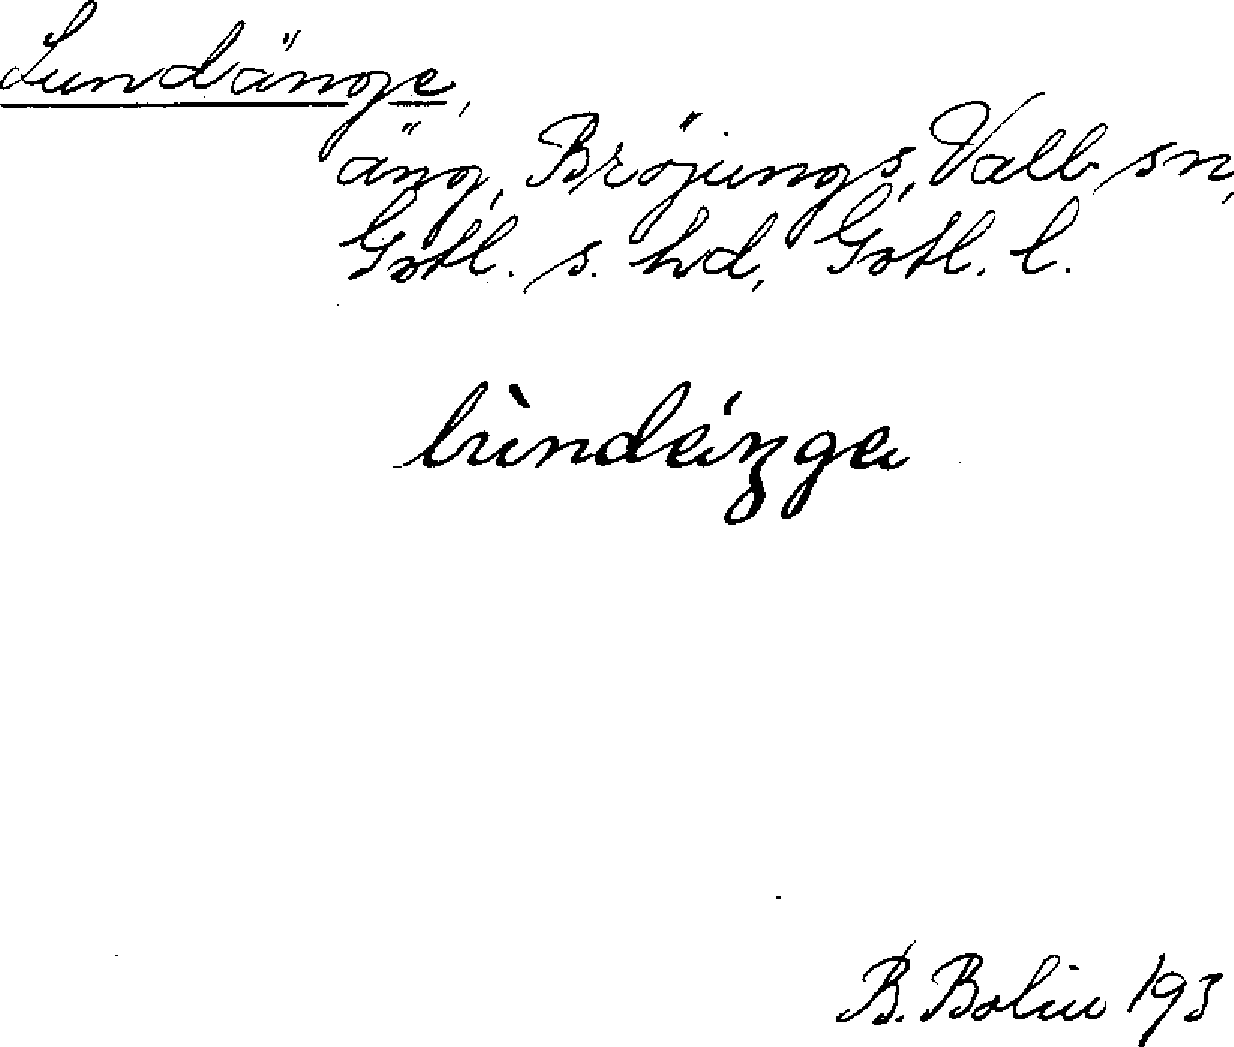 Lundänge,
äng, Bröjungs, Vall sn,
Gotl. s. hd, Gotl. l.
lùndéŋgɐ
B. Bolin 193